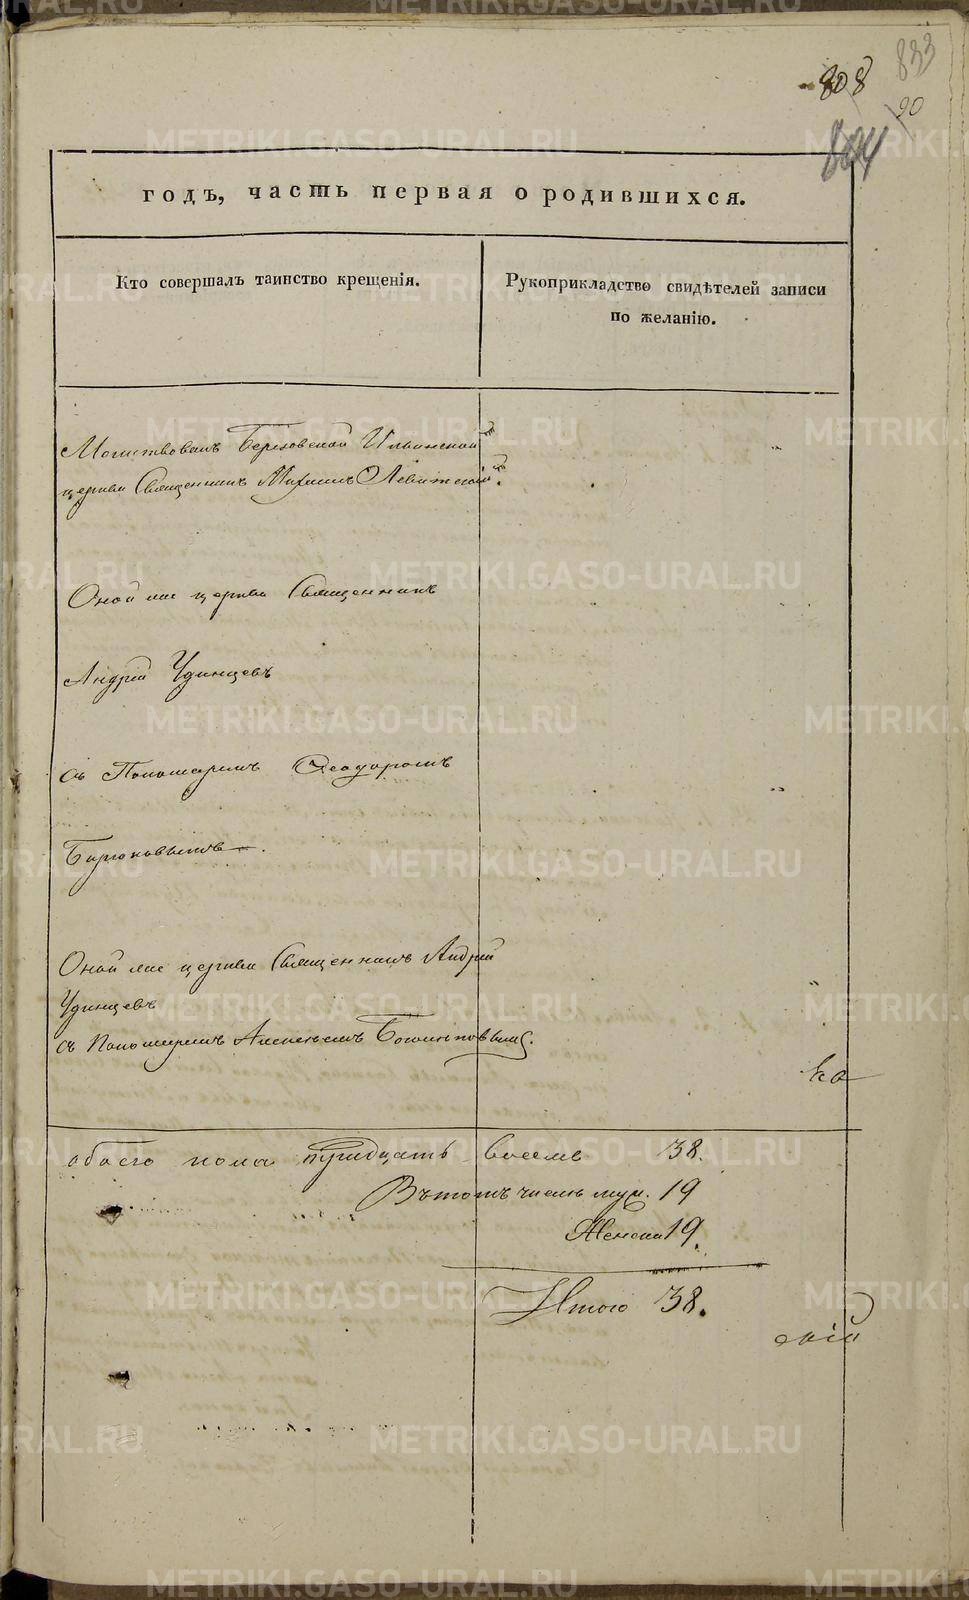 833
808
20
824
годъ, часть первая о родившихся.
Кто совершалъ таинство крещенія.
Рукоприкладство свидѣтелей записи
по желанію.
Молитвовалъ Березовской Ильинской
церкви Священникъ Левитскій.
Оной же церкви Священникъ
Андрей Удинцевъ
съ Пономаремъ Феодоромъ
Оной же церкви Священникъ Андрей
Удинцевъ
съ Пономаремъ Алексѣемъ
обоего пола тридцать восемь 38.
Въ томъ числѣ муж. 19
Женска 19.
Итого 38.
скій
METRIKI.GASO-URAL.RU